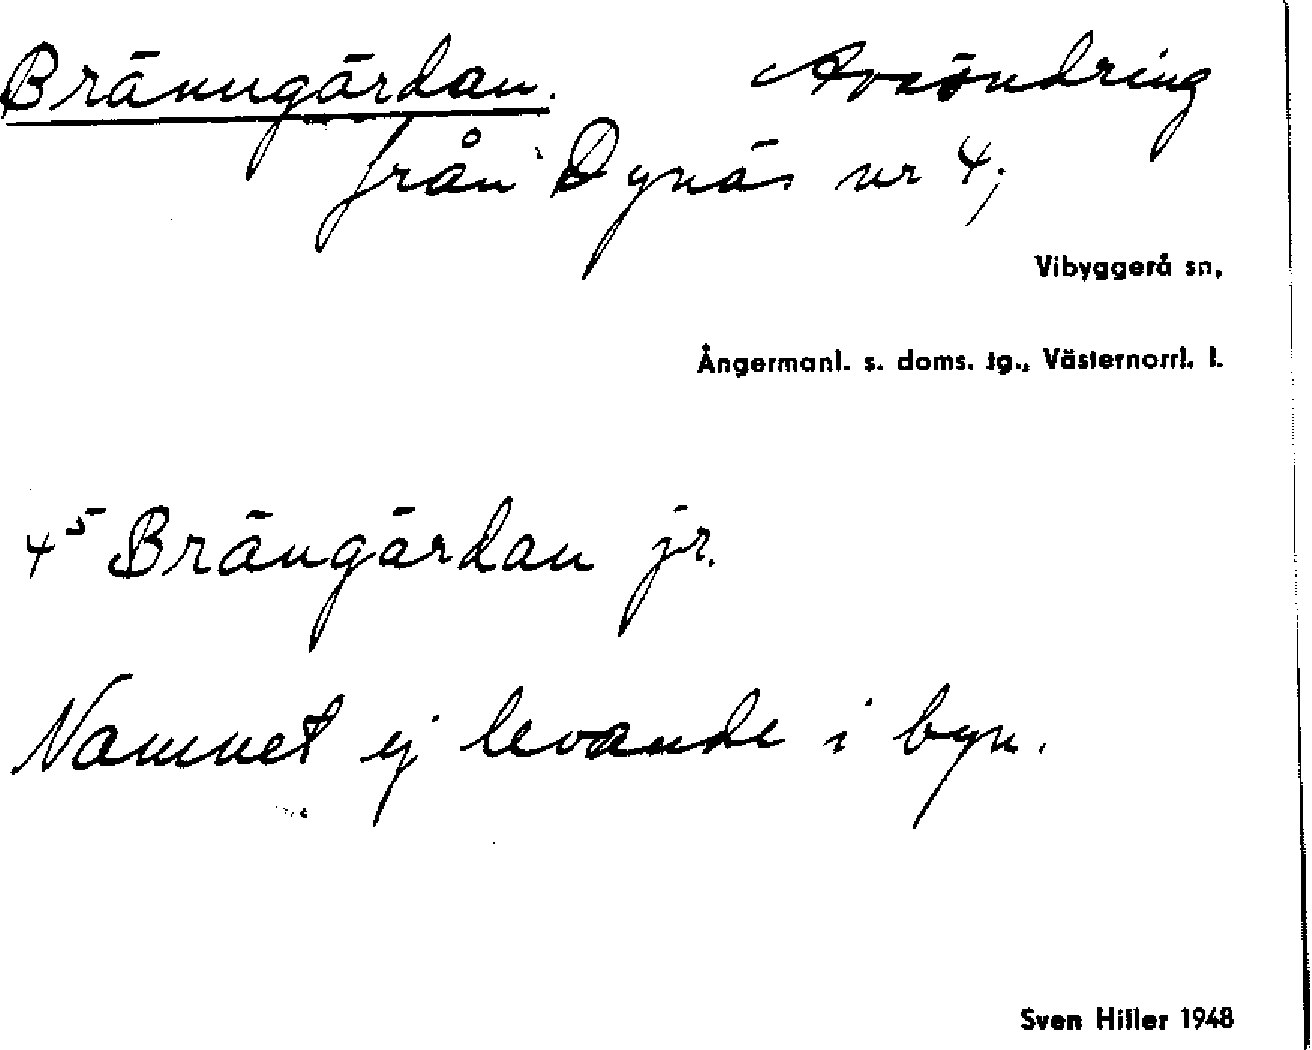 Bränngärdan. Avsöndring
från Dynäs nr 4;
Vibyggerå sn,
Ångermanl. s. doms. tg., Västernorrl. l.
4⁵ Brängärdan jr.
Namnet ej levande i byn.
Sven Hiller 1948